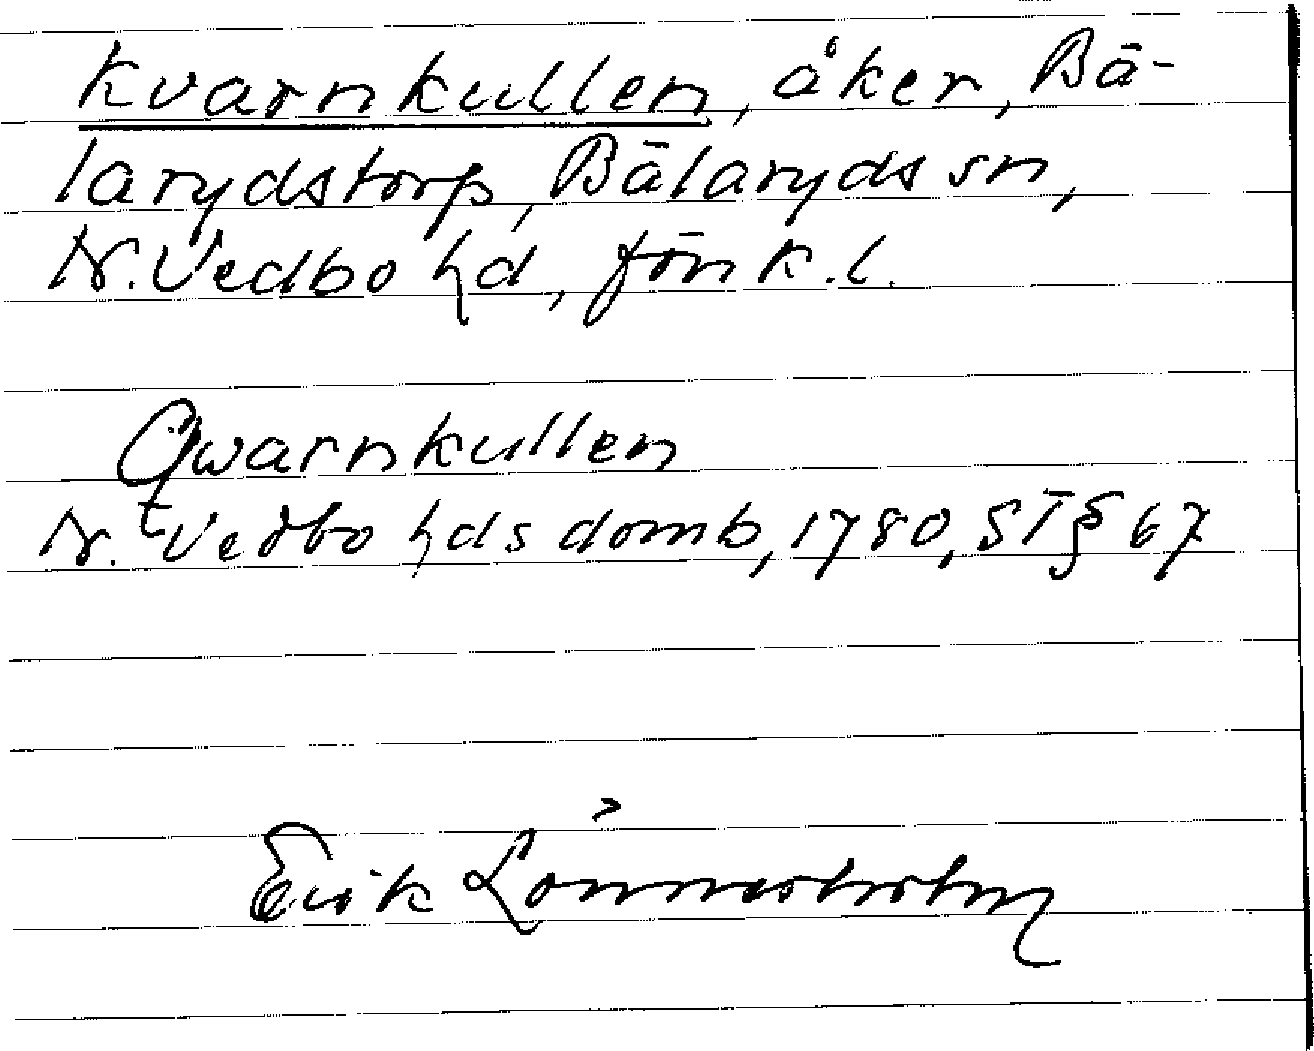 Kvarnkullen, åker, Bä-
larydstorp, Bälaryds sn,
N. Vedbo hd, Jönk. l.
Qwarnkullen
N. Vedbo hds domb, 1780, ST § 67
Erik Lönnerholm